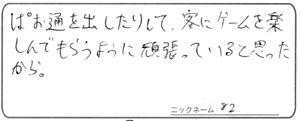 ぱお通を出したりして、客にゲームを楽
しんでもらうように頑張っていると思った
から。
ニックネーム 82